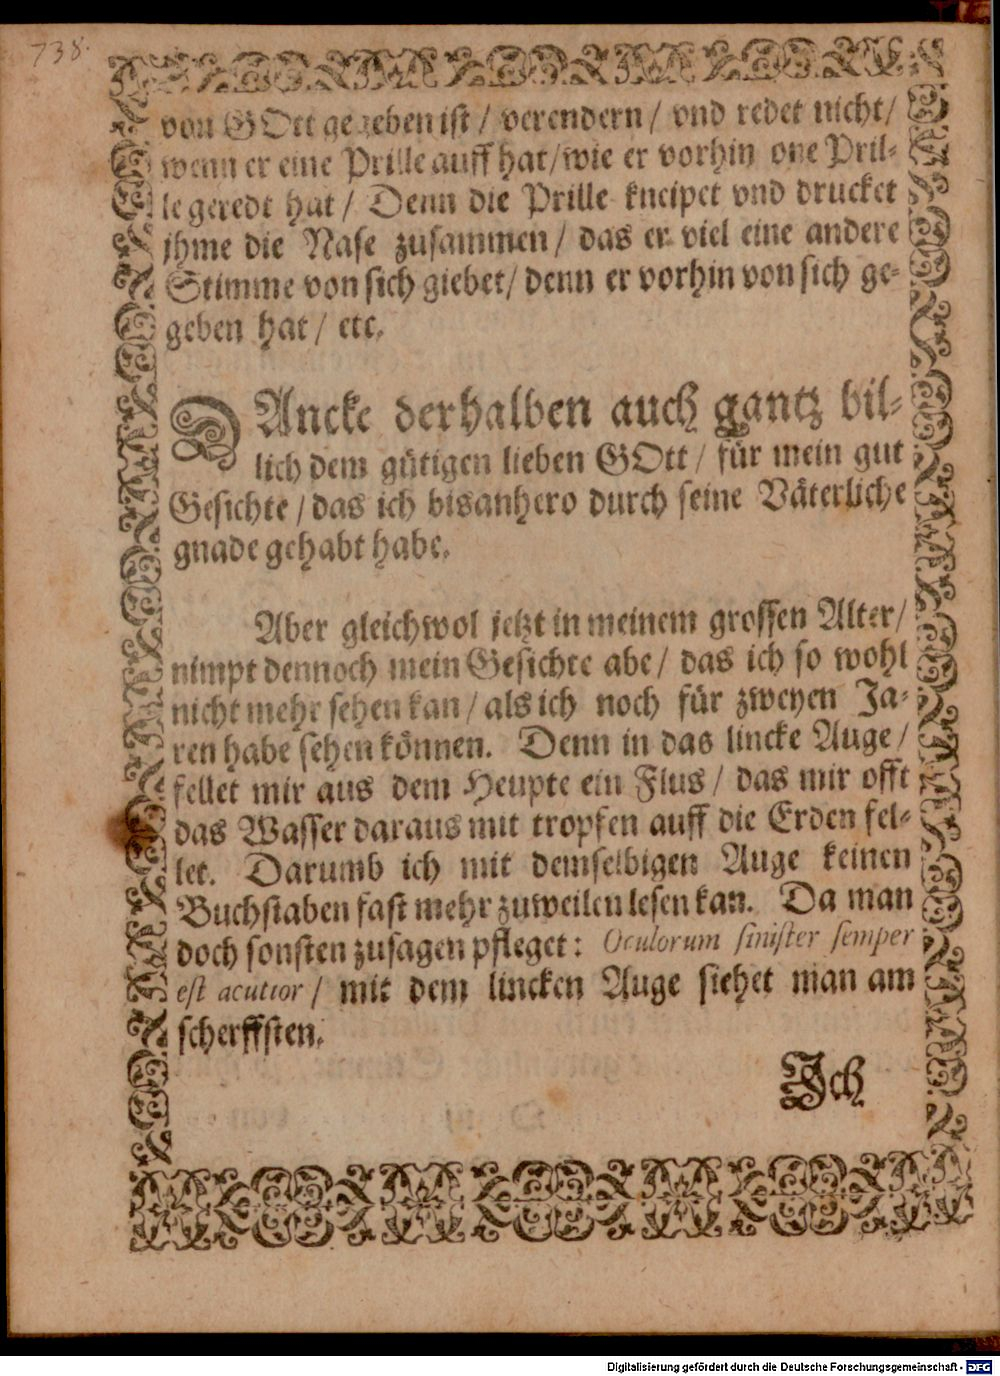 738.
von GOtt gegeben ist / verendern / vnd redet nicht /
wenn er eine Prille auff hat / wie er vorhin one Pril-
le geredt hat / Denn die Prille kneipet vnd drucket
jhme die Nase zusammen / das er viel eine andere
Stimme von sich giebet / denn er vorhin von sich ge-
geben hat / etc.
DAncke derhalben auch gantz bil-
lich dem gütigen lieben GOtt / für mein gut
Gesichte / das ich bisanhero durch seine Väterliche
gnade gehabt habe.
Aber gleichwol jetzt in meinem grossen Alter /
nimpt dennoch mein Gesichte abe / das ich so wohl
nicht mehr sehen kan / als ich noch für zweyen Ja-
ren habe sehen können. Denn in das lincke Auge /
fellet mir aus dem Heupte ein Flus / das mir offt
das Wasser daraus mit tropfen auff die Erden fel-
let. Darumb ich mit demselbigen Auge keinen
Buchstaben fast mehr zuweilen lesen kan. Da man
doch sonsten zusagen pfleget: Oculorum sinister semper
est acutior / mit dem lincken Auge siehet man am
scherffsten.
Ich
Digitalisierung gefördert durch die Deutsche Forschungsgemeinschaft - DFG